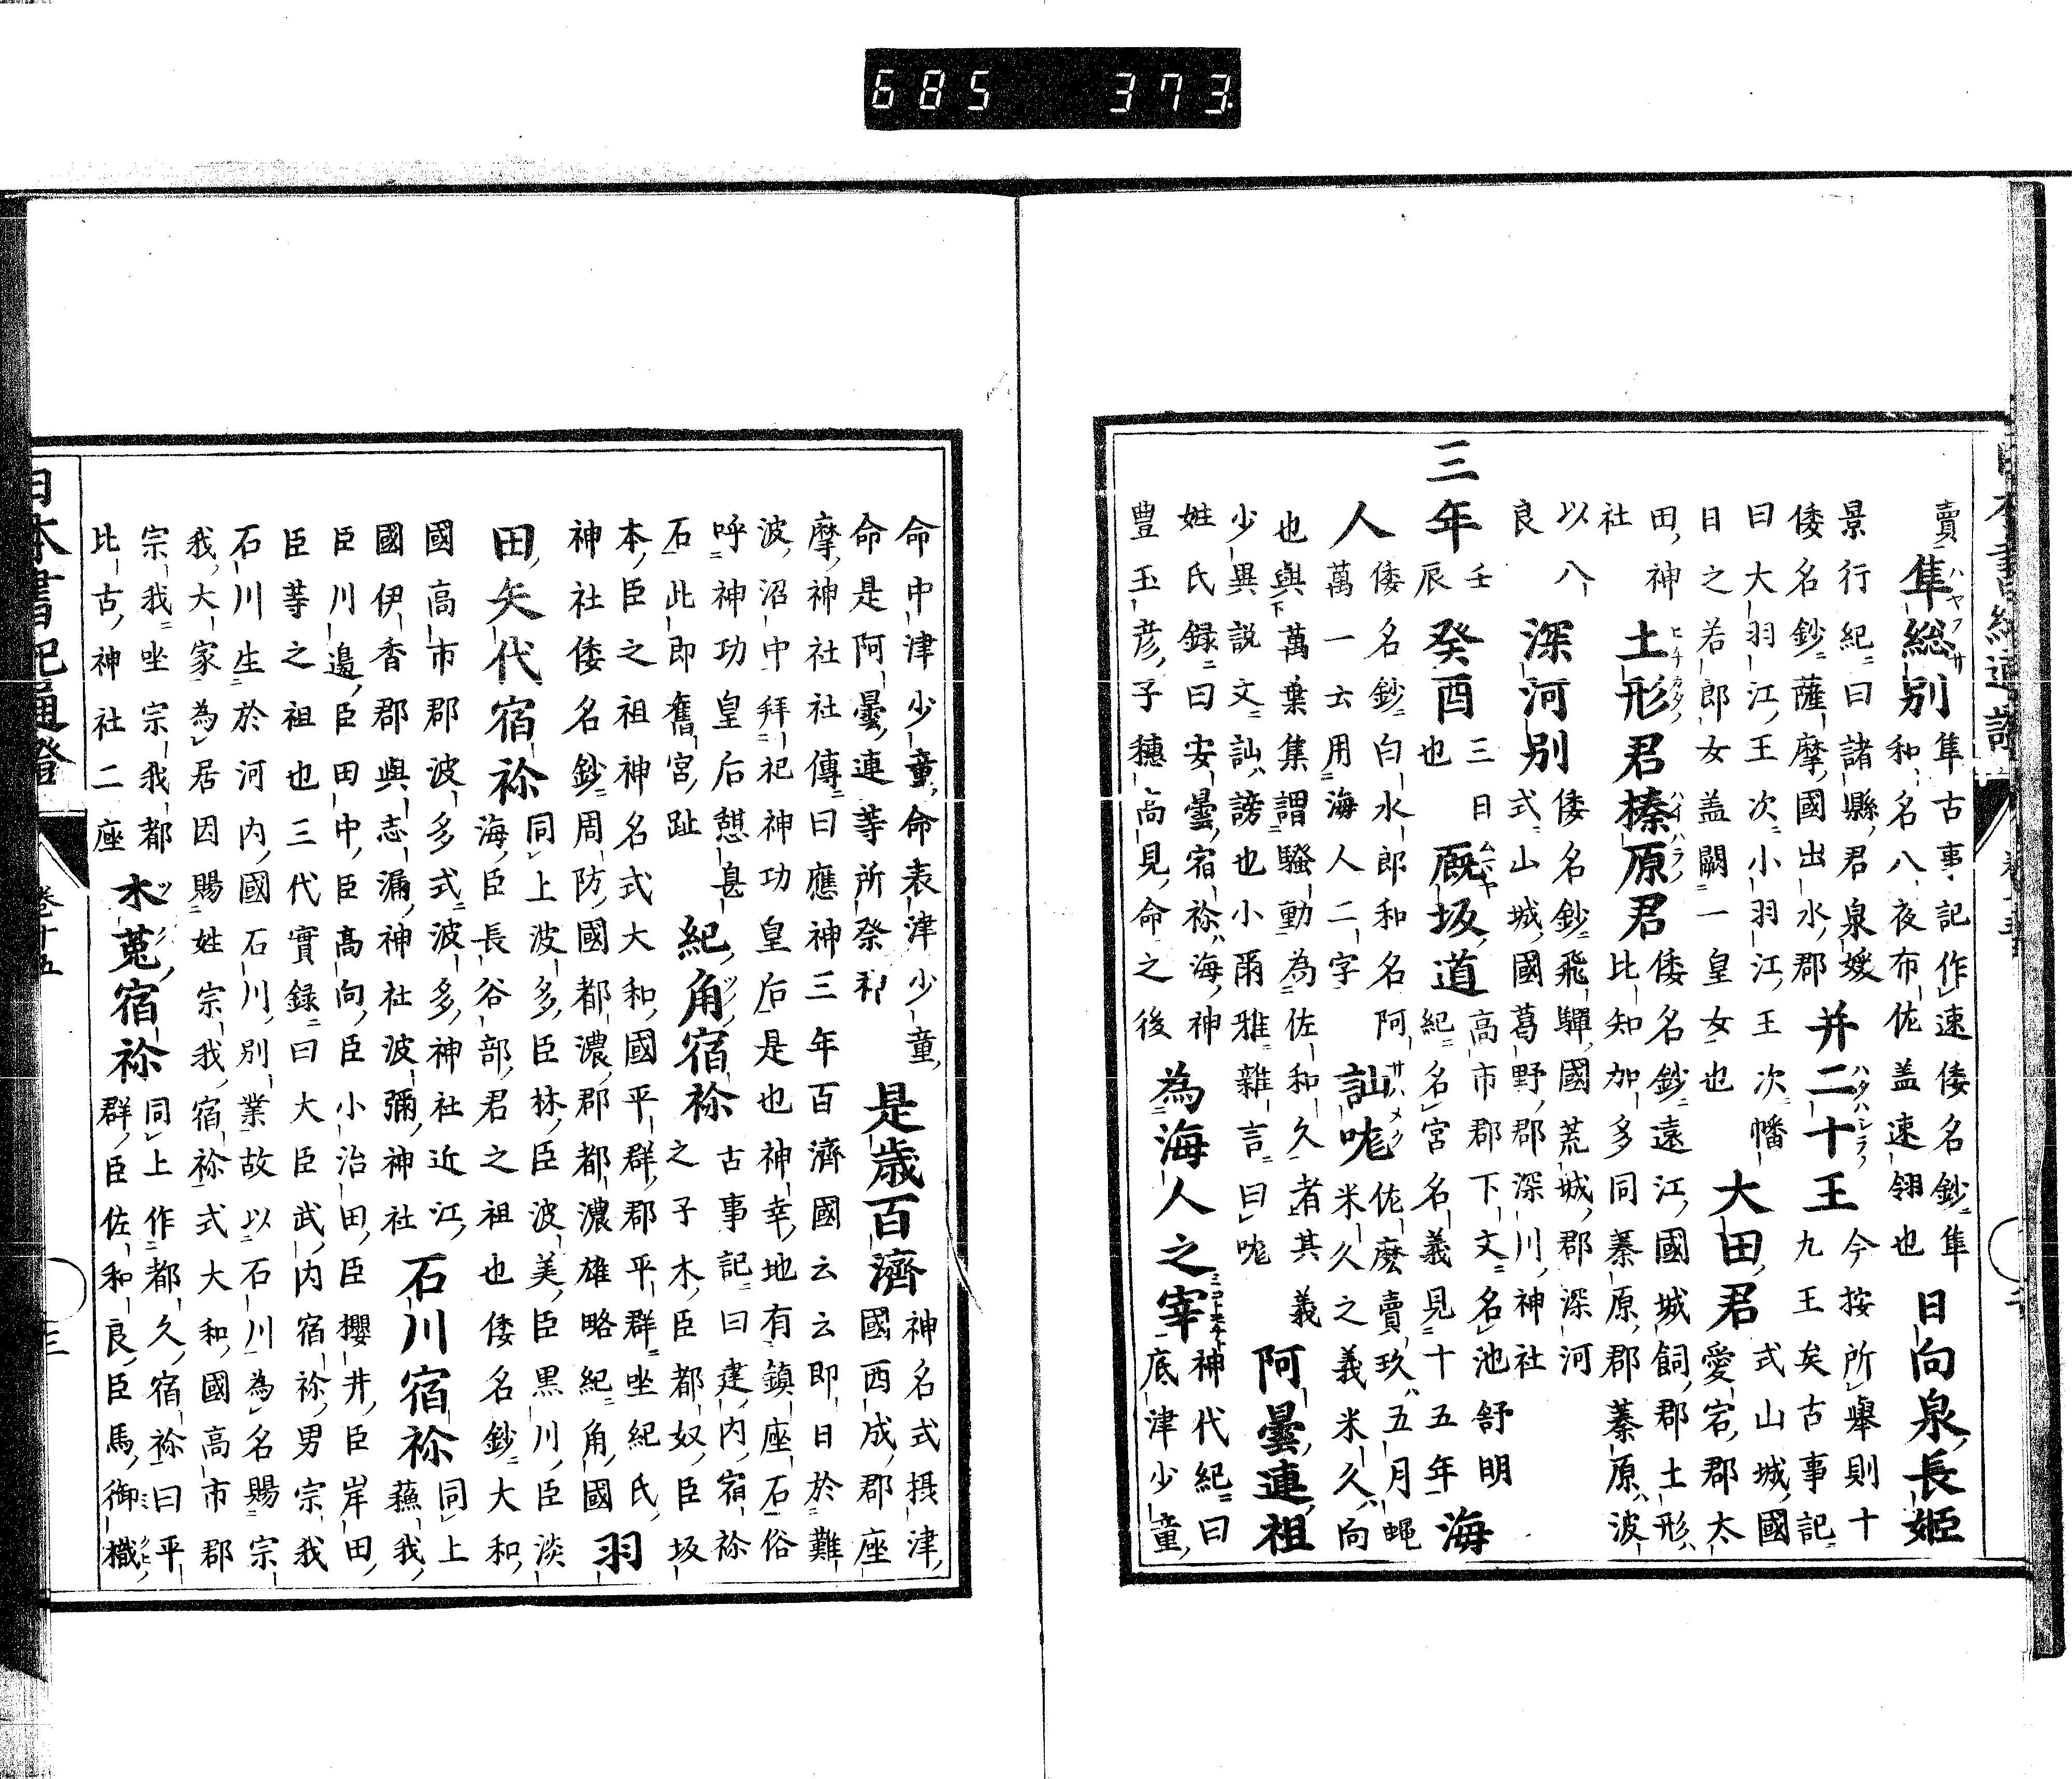 賣
隼総別
ハヤフサ
隼古事記作速倭名鈔隼
和名八夜布佐盖速翎也
日向泉長姬
景行紀曰諸縣君泉媛
倭名鈔薩摩國出水郡
并二十王
ハタハシラ
今按所舉則十
九王矣古事記
曰大羽江王次小羽江王次幡
日之若郎女盖闕一皇女也
大田君
式山城國
愛宕郡太
田神
社
土形君榛原君
ヒチカタ ハイハラ
倭名鈔遠江國城飼郡土形
比知加多同蓁原郡蓁原波
以八
良
深河別
倭名鈔飛驒國荒城郡深河
式山城國葛野郡深川神社
三年
壬
辰
癸酉
三日
也
厩坂道
ムマヤ
高市郡下文名池舒明
紀名宮名義見十五年
海
人
倭名鈔白水郎和名阿
萬一云用海人二字
訕哤
サハメク
佐麽賣玖八五月蠅
米久之義米久向
也與萬葉集謂騷動為佐和久者其義
少異説文訕謗也小爾雅雜言曰哤
阿曇連祖
姓氏録曰安曇宿祢海神
豊玉彦子穗高見命之後
為海人之宰
ミコトモチト
神代紀曰
底津少童
命中津少童命表津少童
命是阿曇連等所祭神
是歳百濟
神名式摂津
國西成郡座
摩神社社傳曰應神三年百濟國云云即日於難
波沼中拜祀神功皇后是也神幸地有鎮座石俗
呼神功皇后憇息
石此即舊宮趾
紀角宿祢
ツノ
古事記曰建内宿祢
之子木臣都奴臣坂
本臣之祖神名式大和國平群郡平群坐紀氏
神社倭名鈔周防國都濃郡都濃雄略紀角國
羽
田矢代宿祢
同上波多臣林臣波美臣黒川臣淡
海臣長谷部君之祖也倭名鈔大和
國高市郡波多式波多神社近江
國伊香郡與志漏神社波彌神社
石川宿祢
同上
蘓我
臣川邉臣田中臣高向臣小治田臣櫻井臣岸田
臣等之祖也三代實録曰大臣武内宿祢男宗我
石川生於河内國石川別業故以石川為名賜宗
我大家為居因賜姓宗我宿祢式大和國高市郡
宗我坐宗我都
比古神社二座
木菟宿祢
ツノ
同上作都久宿祢曰平
群臣佐和良臣馬御樴
ミクヒ
日本書紀通證
卷十五
三
685 373